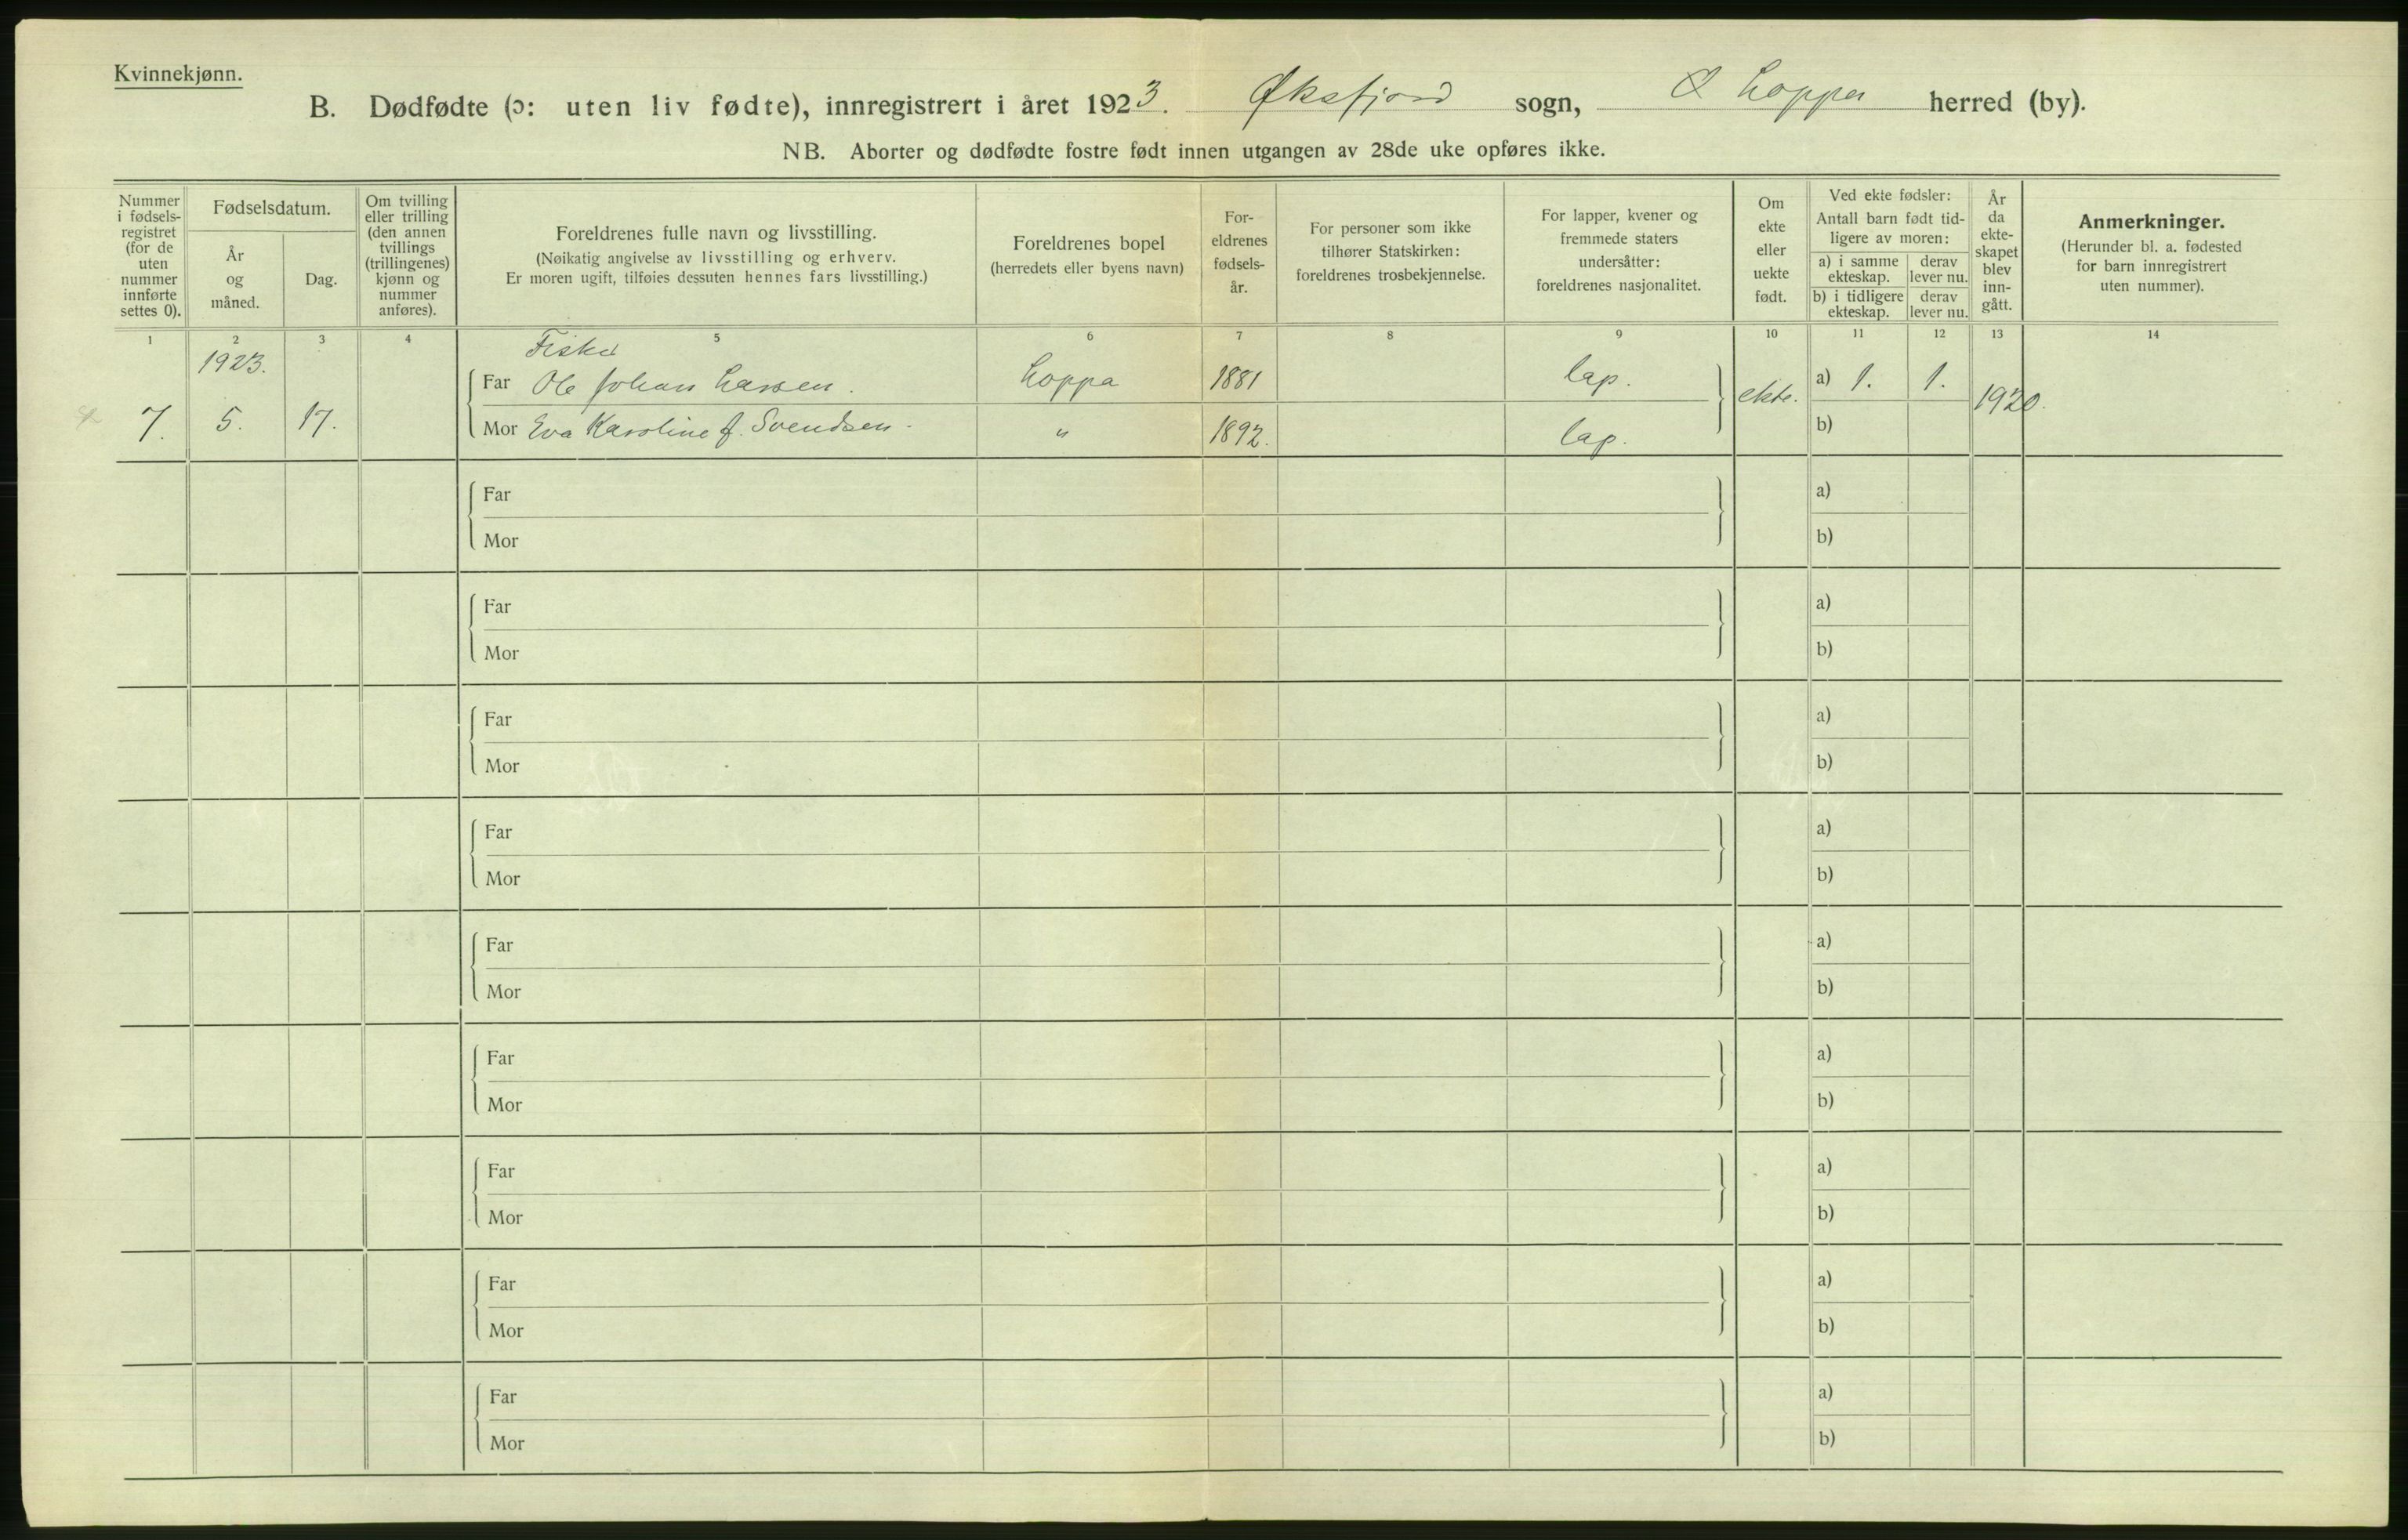 Kvinnekjønn.
B. Dødfødte (ɔ: uten liv fødte), innregistrert i året 1923. Øksfjord sogn, Loppa herred (by).
NB. Aborter og dødfødte fostre født innen utgangen av 28de uke opføres ikke.
Nummer i fødsels-registret (for de uten nummer innførte settes 0).
Fødselsdatum.
År og måned.
Dag.
Om tvilling eller trilling (den annen tvillings (trillingenes) kjønn og nummer anføres).
Foreldrenes fulle navn og livsstilling.
(Nøikatig angivelse av livsstilling og erhverv.
Er moren ugift, tilføies dessuten hennes fars livsstilling.)
Foreldrenes bopel
(herredets eller byens navn)
For-eldrenes fødsels-år.
For personer som ikke tilhører Statskirken: foreldrenes trosbekjennelse.
For lapper, kvener og fremmede staters undersåtter: foreldrenes nasjonalitet.
Om ekte eller uekte født.
Ved ekte fødsler:
Antall barn født tid-ligere av moren:
a) i samme ekteskap. derav lever nu.
b) i tidligere ekteskap. derav lever nu.
År da ekte-skapet blev inn-gått.
Anmerkninger.
(Herunder bl. a. fødested for barn innregistrert uten nummer).
1 2 3 4 5 6 7 8 9 10 11 12 13 14
1923. Fisker
Far Ole Johan Larsen. Loppa 1881 lap. a) 1. 1.
7. 5. 17. ekte. 1920.
Mor Eva Karoline f. Svendsen. " 1892. lap. b)
Far a)
Mor b)
Far a)
Mor b)
Far a)
Mor b)
Far a)
Mor b)
Far a)
Mor b)
Far a)
Mor b)
Far a)
Mor b)
Far a)
Mor b)
Far a)
Mor b)